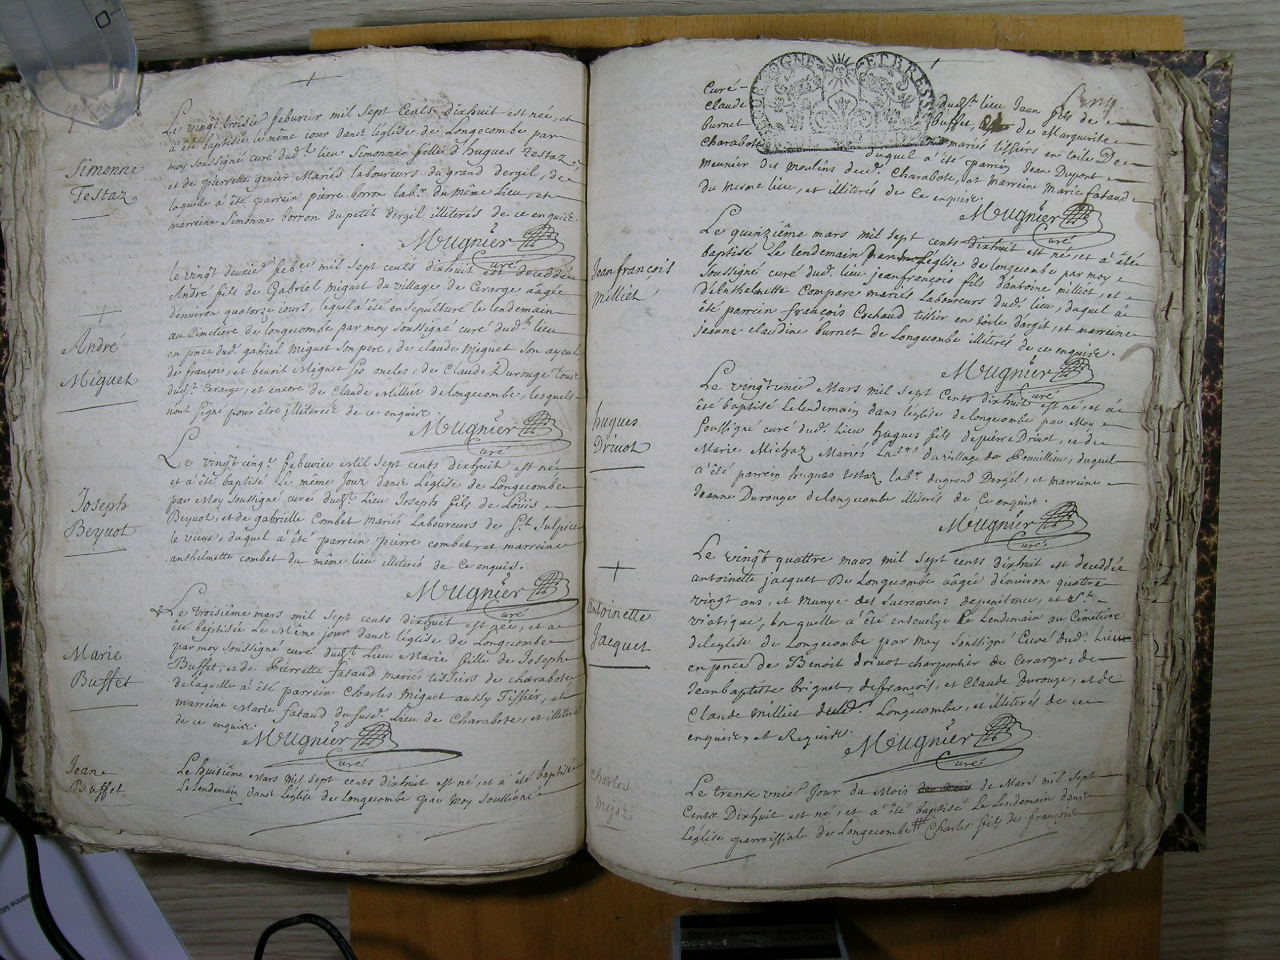 Simonne
Testaz
Le vingt troisie febvrier mil sept cents dixhuit est née, et
à été baptisée le même jour dans L'eglise de Longecombe par
moy soussigné curé dud.t lieu Simonne fille d'hugues Testaz,
et de pierrette genier Mariés laboureurs du grand dergil, de
laquelle à été parrein pierre borron lab.r du même Lieu, et
marreine Simonne borron du petit dergil illiterés de ce enquis.
Mugnier
Curé
André
Miguet
le vingt deuxie febvr. mil sept cents dixhuit est decedé
André fils de Gabriel miguet du village de Cerarge aâgé
d'environ quatorze jours, lequel à été ensepulturé le lendemain
au Cimetière de Longecombe par moy Soussigné curé dud.t lieu
en pnce dud. gabriel miguet son pere, de claude miguet son ayeul
de françois, et benoit Miguet ses oncles, de Claude Durouge
dud.t Cerarge, et encore de Claude Milliet de Longecombe, lesquels
nont signé pour être jlliterés de ce enquis
Mugnier
Curé
Joseph
Beyuot
Le vingt cinq.e febvrier mil sept cents dixhuit est né
et à été baptisé le même jour dans L'eglise de Longecombe
par Moy soussigné curé dud.t Lieu Joseph fils de Loüis
Beyuot, et de gabrielle Combet mariés Laboureurs de S.t Sulpice
le vieux, duquel à été parrein pierre combet, et marreine
anthelmette combet du même lieu illiterés de ce enquis.
Mugnier
Curé
Marie
Buffet
Le troisième mars mil sept cents dixhuit est née, et à
été baptisée le même jour dans L'eglise de Longecombe
par moy soussigné curé dud.t Lieu Marie fille de Joseph
Buffet, et de Pierrette fataud mariés tissiers de charabote
de laquelle à été parrein Charles Miguet aussy Tissier, et
marreine Marie fataud du susd. Lieu de Charabote, et illiterés
de ce enquis.
Mugnier
Curé
Jean
Buffet
Le huitième Mars mil sept cents dixhuit est né, et à été baptisé
Le lendemain dans L'eglise de Longecombe par Moy soussigné
Curé dud.t lieu Jean fils de
claude Buffet, et de Marguerite
burnet mariés tissiers en toile De
charabote duquel à été parrein Jean Dupont
meunier des moulins deud. Charabote, et marreine Marie fataud
du meme lieu, et illiterés de Ce enquis
Mugnier
Curé
Jean françois
Milliet
Le quinzième mars mil sept cents dixhuit est né, et à été
baptisé Le lendemain L'eglise de longecombe par moy
soussigné curé dud. lieu jeanfrançois fils d'antoine milliet, et
d'Anthelmette Compare mariés Laboureurs dud. lieu, duquel à
été parrein françois Cochaud tissier en toile d'argit, et marreine
jeanne claudine burnet de Longecombe illiterés de ce enquis.
Mugnier
Curé
hugues
Drivot
Le vingt unie Mars mil sept Cents dixhuit est né, et à
été baptisé Lelendemain dans L'eglise de longecombe par Moy
soussigné curé dud. Lieu hugues fils de pierre Drivot, et de
Marie Michaz Mariés Lab.rs du village de duquel
à été parrein hugues testaz lab.r du grand Dergil, et marreine
Jeanne Durouge de longecombe illiterés de Ce enquis.
Mugnier
Curé
Antoinette
Jacquet
Le vingt quattre mars mil sept cents dixhuit est decedée
antoinette jacquet De Longecombe aâgée d'environ quatre
vingt ans, et Munye des sacremens de penitence, et S.t
viatique, Laquelle à été ensevelye Le Lendemain au Cimetière
de L'eglise de Longecombe par Moy soussigné Curé dud. Lieu
en pnce de Benoit drivot charpentier de Cerarge, de
Jeanbaptiste brignet, de françois, et Claude Durouge, et de
Claude Milliet dud. Longecombe, et illiterés de ce
enquis, et Requis.
Mugnier
Curé
Charles
Le trente unie Jour du Mois de Mars mil sept
Cents Dixhuit est né, et à été baptisé Le lendemain dans
L'eglise parroissiale de Longecombe Charles fils de françois